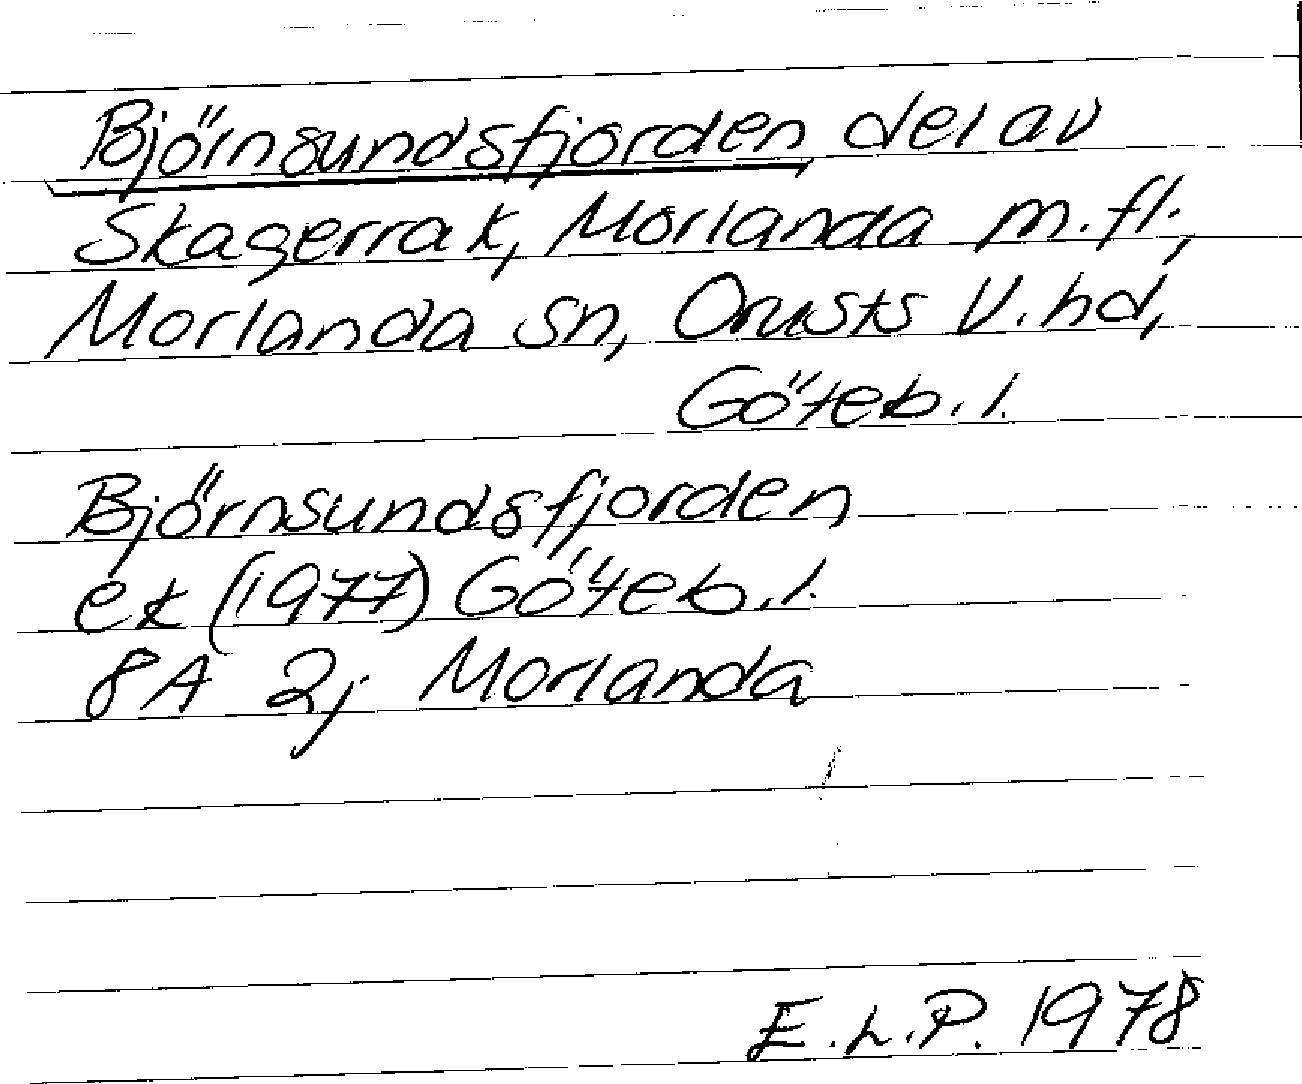 Björnsundsfjorden, del av
Skagerrak, Morlanda m.fl.,
Morlanda sn, Orusts V. hd,
Göteb. l.
Björnsundsfjorden
ek (1977) Göteb. l.
8A 2j Morlanda
E.L.P. 1978